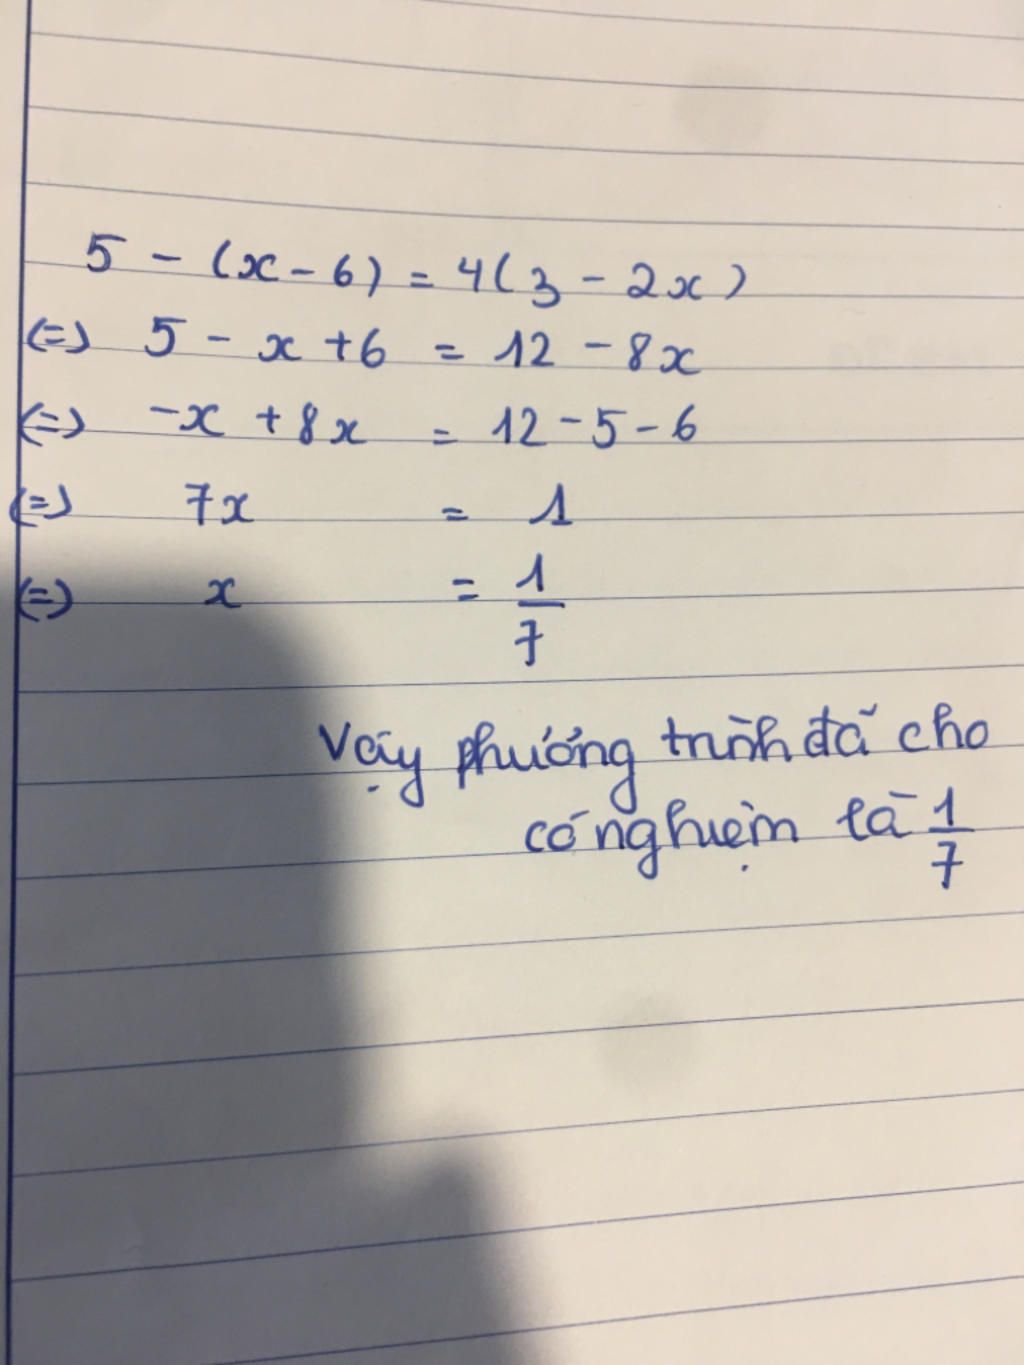 5 - (x - 6) = 4(3 - 2x)
(=) 5 - x + 6 = 12 - 8x
(=) -x + 8x = 12 - 5 - 6
(=) 7x = 1
(=) x = 1/7
Vậy phương trình đã cho
có nghiệm là 1/7